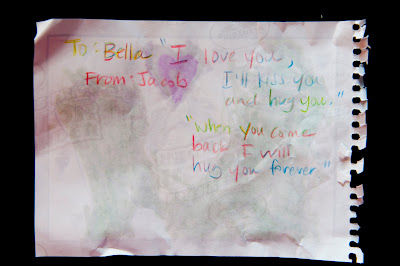 To: Bella "I love you,
From: Jacob I'll kiss you
and hug you."
"When you come
back I will
hug you forever"